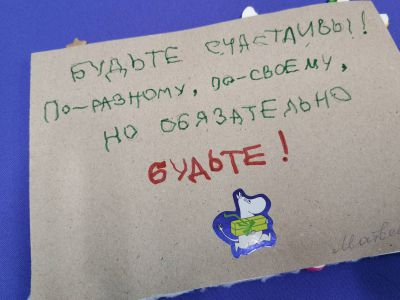 БУДЬТЕ СЧАСТЛИВЫ!
ПО-РАЗНОМУ, ПО-СВОЕМУ,
НО ОБЯЗАТЕЛЬНО
БУДЬТЕ!